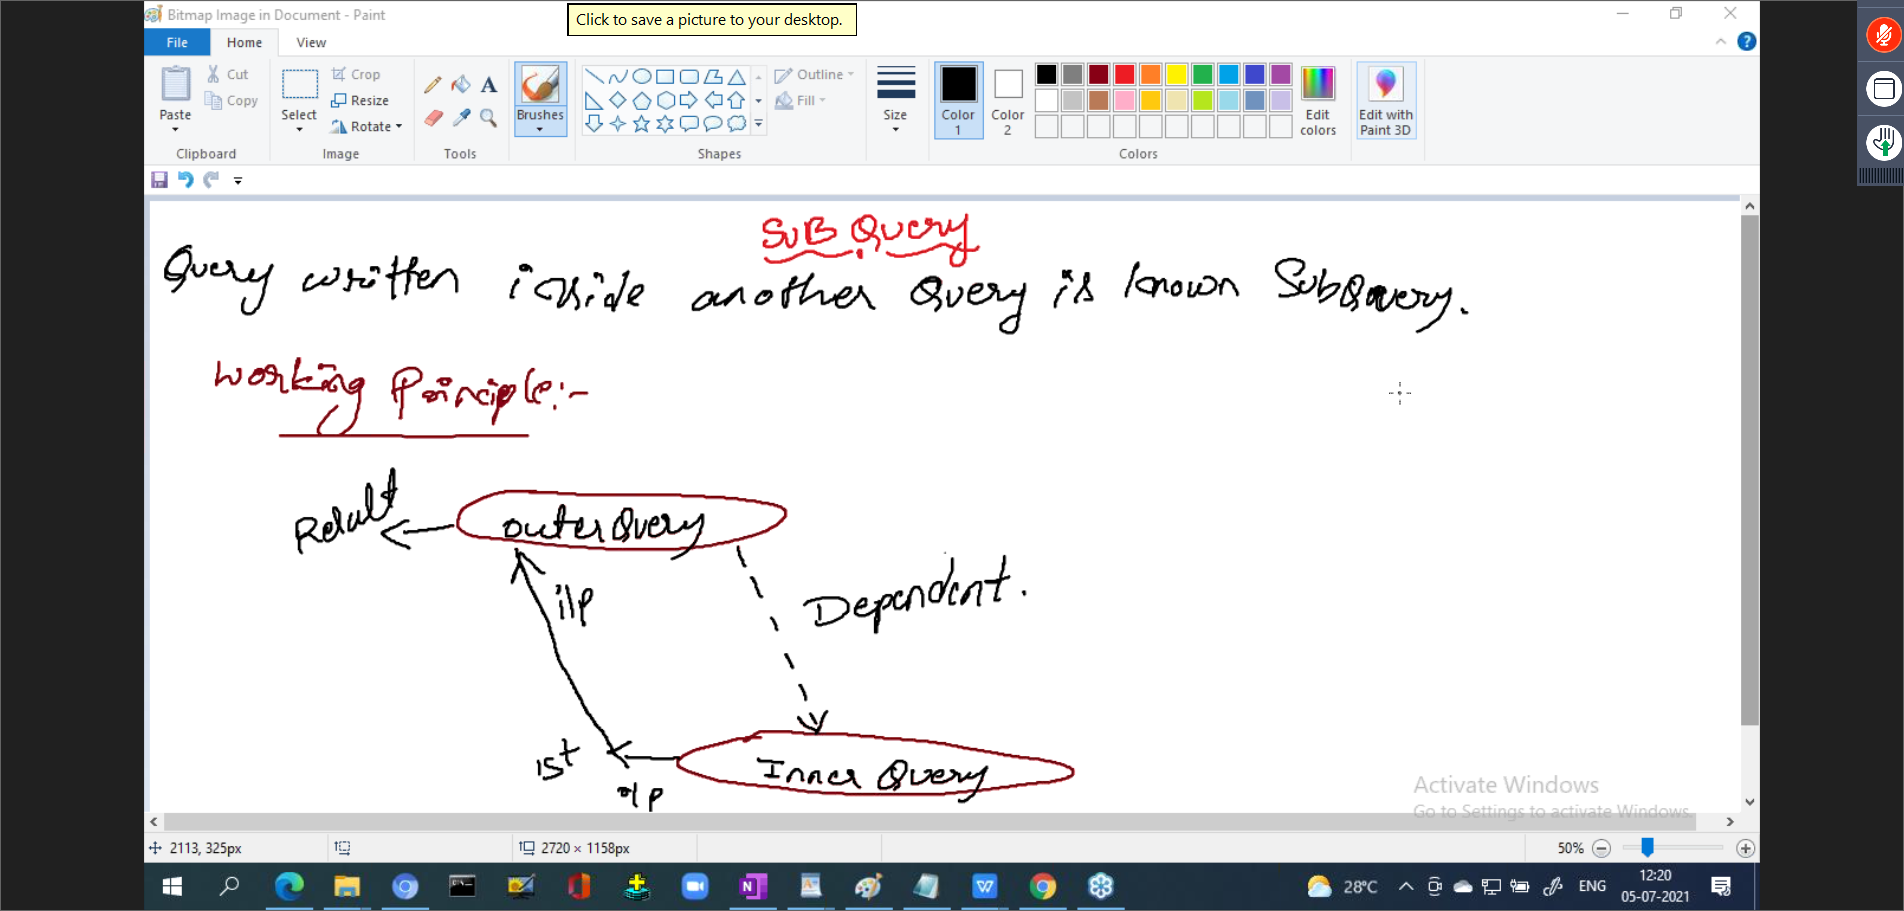 Bitmap Image in Document - Paint
Click to save a picture to your desktop.
File Home View
Cut
Copy
Paste
Clipboard
Select
Crop
Resize
Rotate
Image
Tools
Brushes
Outline
Fill
Shapes
Size
Color 1
Color 2
Edit colors
Colors
Edit with Paint 3D
SUB Query
Query written inside another Query is known SubQuery.
Working Principle:-
Result
outer Query
i/p
Dependent.
1st
o/p
Inner Query
Activate Windows
Go to Settings to activate Windows.
2113, 325px
2720 × 1158px
50%
28°C
ENG
12:20
05-07-2021